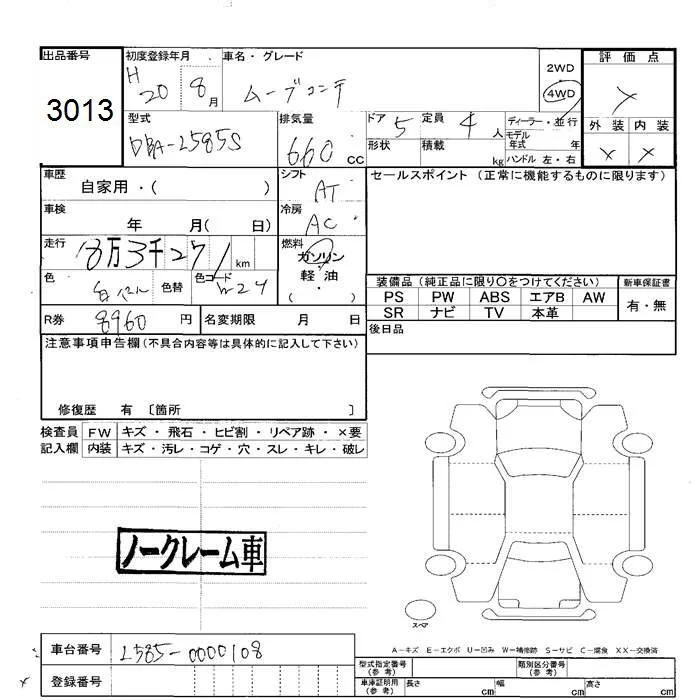 出品番号 初度登録年月 車名・グレード 2WD 評価点
3013 H 20 8月 ムーブコンテ 4WD
型式 排気量 ドア 5 定員 4人 ディーラー・並行 外装 内装
DBA-L585S 660 CC 形状 積載 kg モデル年式 年
ハンドル 左・右 × ×
車歴 シフト セールスポイント (正常に機能するものに限ります)
自家用・( ) AT
車検 冷房
年 月( 日) AC
走行 8万3千271km 燃料 ガソリン
軽油
・( )
色 色替 色コード W24 装備品 (純正品に限り〇をつけてください) 新車保証書
PS PW ABS エアB AW 有・無
R券 8960円 名変期限 月 日 SR ナビ TV 本革
注意事項申告欄(不具合内容等は具体的に記入して下さい) 後日品
修復歴 有 〔箇所 〕
検査員 FW キズ・飛石・ヒビ割・リペア跡・×要
記入欄 内装 キズ・汚レ・コゲ・穴・スレ・キレ・破レ
ノークレーム車
スペア
A-キズ E-エクボ U-凹み W-補修跡 S-サビ C-腐食 XX-交換済
車台番号 L585-0000108
型式指定番号(参考) 類別区分番号(参考)
登録番号 車庫証明用(参考) 長さ cm 幅 cm 高さ cm